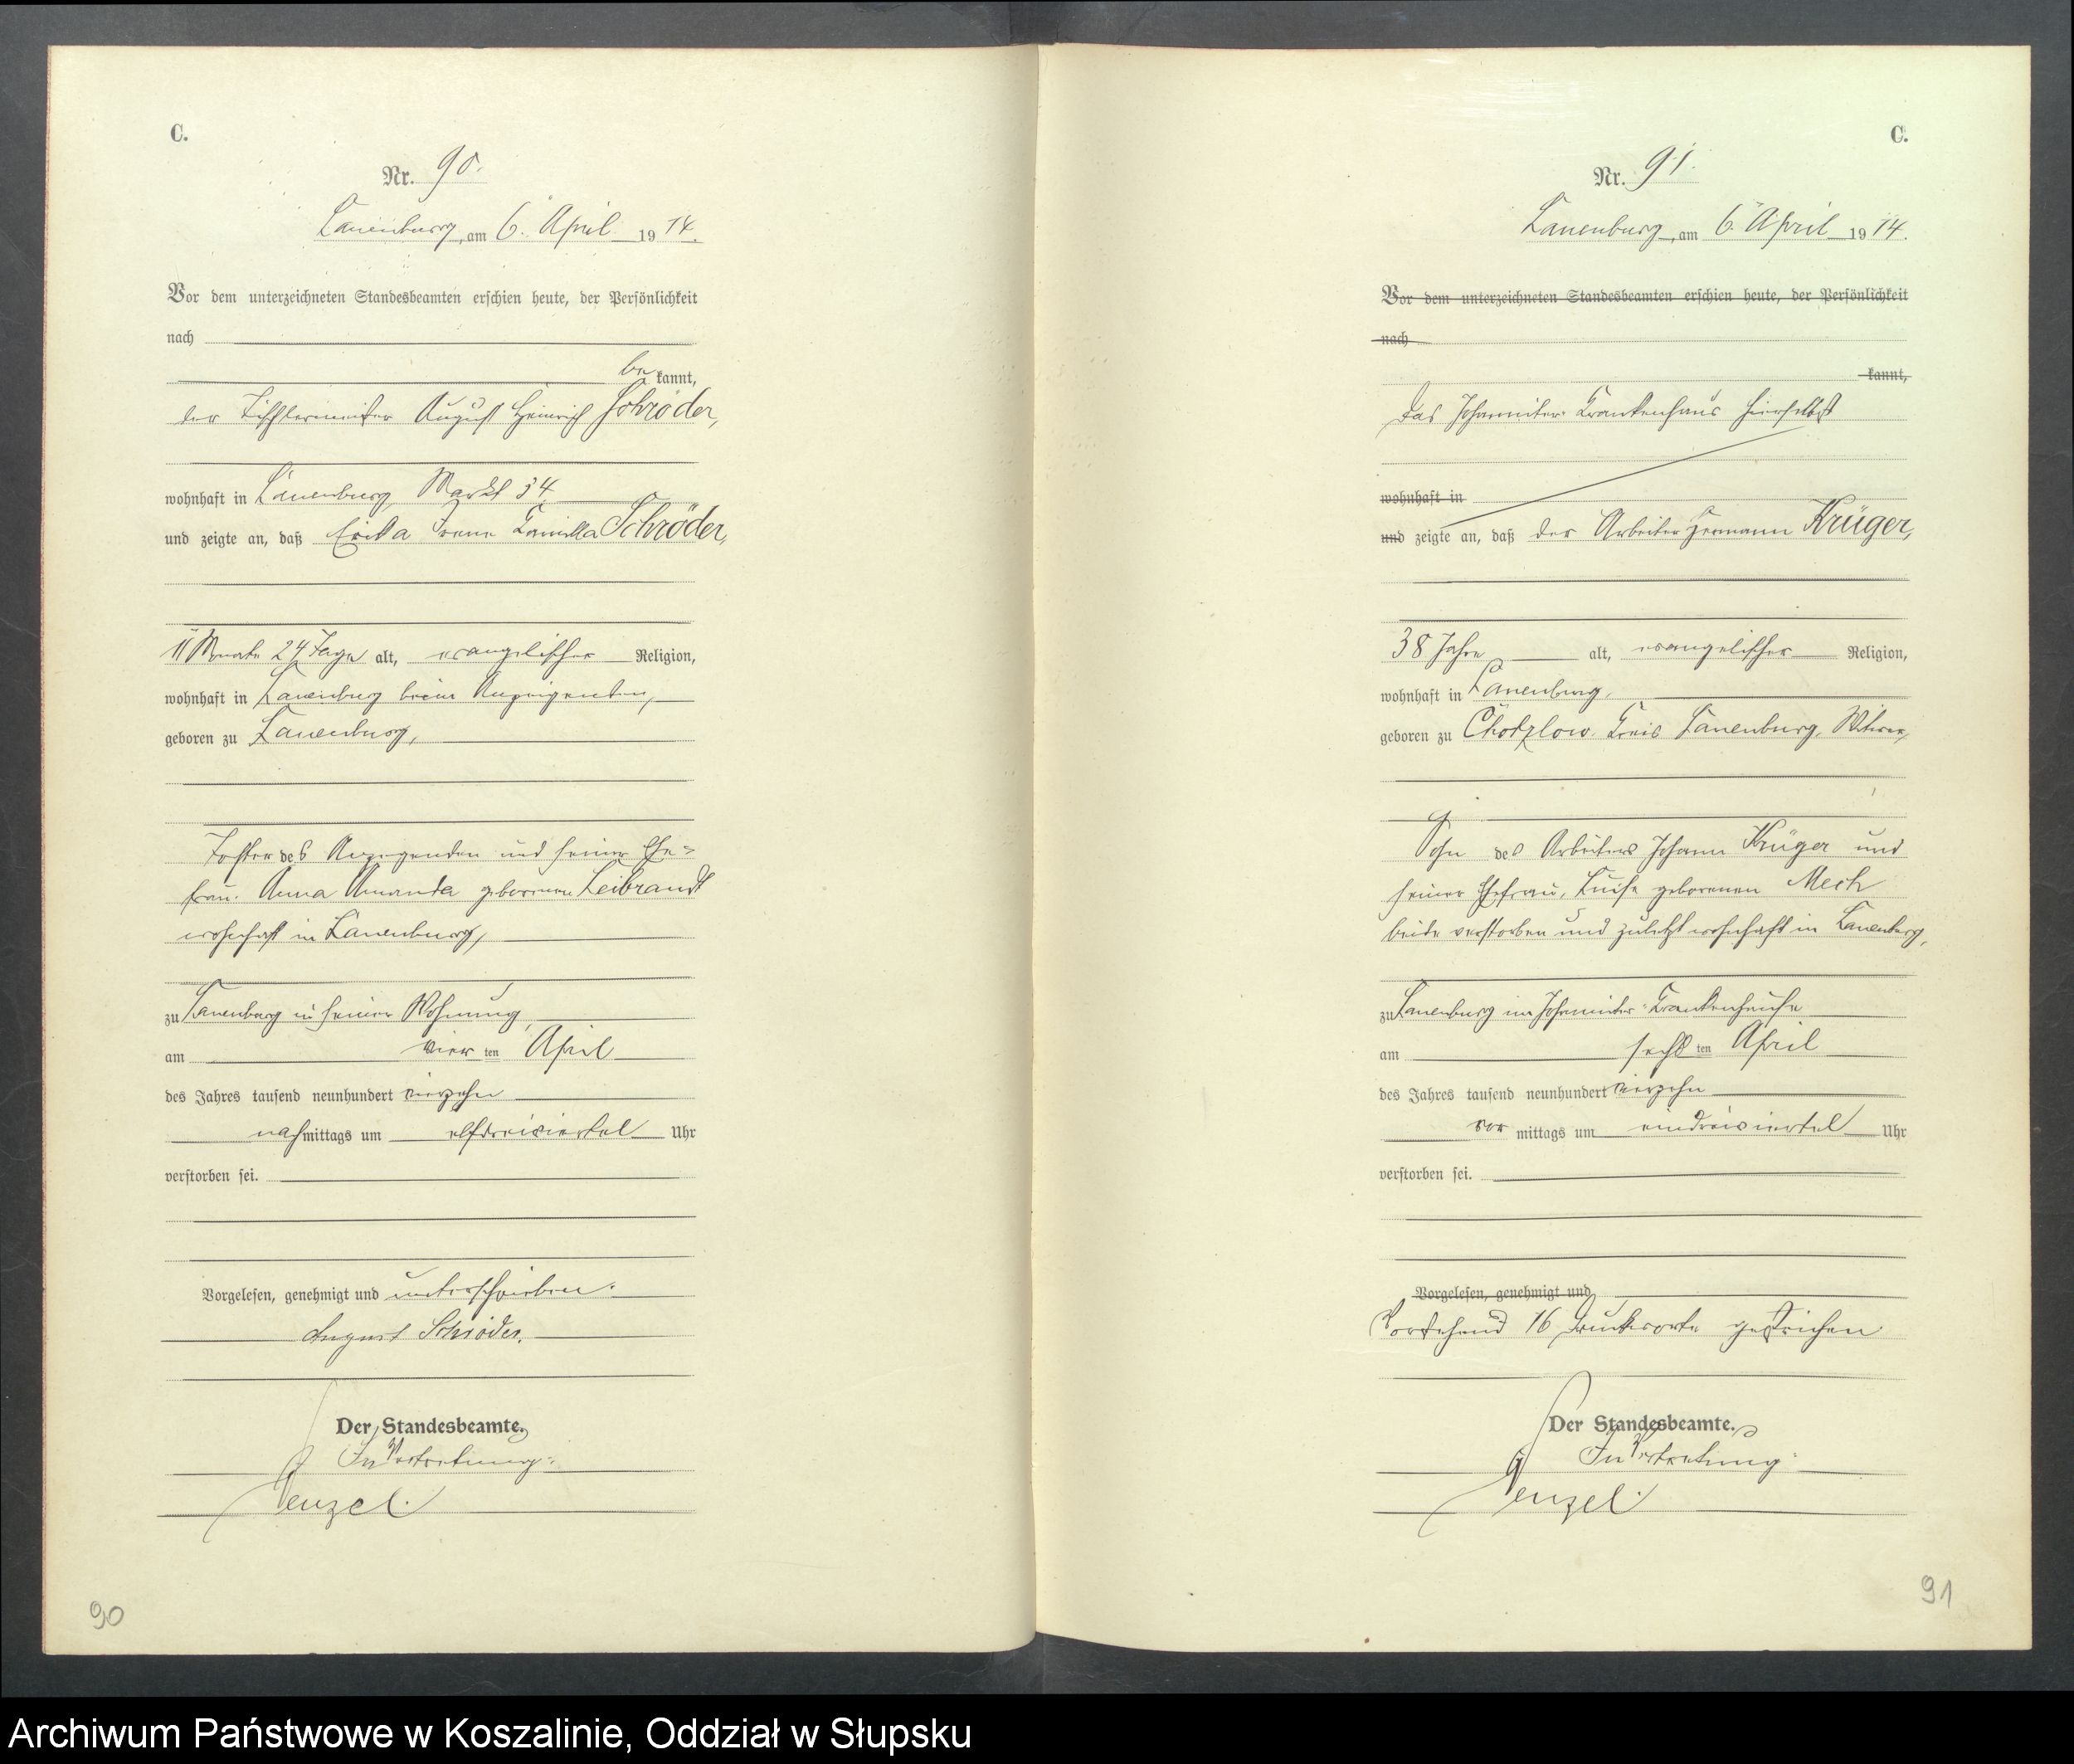 C.
Nr. 90.
Lauenburg, am 6. April 1914.
Vor dem unterzeichneten Standesbeamten erschien heute, der Persönlichkeit
nach
be kannt,
der Tischlermeister August Heinrich Schröder,
wohnhaft in Lauenburg, Markt 34
und zeigte an, daß Erika Irene Schröder,
11 Monate 24 Tage alt, evangelischer Religion,
wohnhaft in Lauenburg beim Anzeigenden,
geboren zu Lauenburg,
Tochter des Anzeigenden und seiner Ehe=
frau, Anna Amanda geborenen Leibrandt
wohnhaft in Lauenburg,
zu Lauenburg in seiner Wohnung
am vier ten April
des Jahres tausend neunhundert vierzehn
nachmittags um elfdreiviertel Uhr
verstorben sei.
Vorgelesen, genehmigt und unterschrieben.
August Schröder.
Der Standesbeamte.
In Vertretung:
Wenzel.
90
C.
Nr. 91.
Lauenburg, am 6. April 1914.
Vor dem unterzeichneten Standesbeamten erschien heute, der Persönlichkeit
nach
kannt,
Das Johanniter-Krankenhaus hierselbst
wohnhaft in
und zeigte an, daß der Arbeiter Hermann Krüger,
38 Jahre alt, evangelischer Religion,
wohnhaft in Lauenburg,
geboren zu Chotzlow Kreis Lauenburg, Witwer,
Sohn des Arbeiters Johann Krüger und
seiner Ehefrau, Luise geborenen Mech
beide verstorben und zuletzt wohnhaft in Lauenburg,
zu Lauenburg im Johanniter-Krankenhause
am sechs ten April
des Jahres tausend neunhundert vierzehn
vor mittags um eindreiviertel Uhr
verstorben sei.
Vorgelesen, genehmigt und
Vorstehend 16 Druckworte gestrichen.
Der Standesbeamte.
In Vertretung:
Wenzel.
91
Archiwum Państwowe w Koszalinie, Oddział w Słupsku